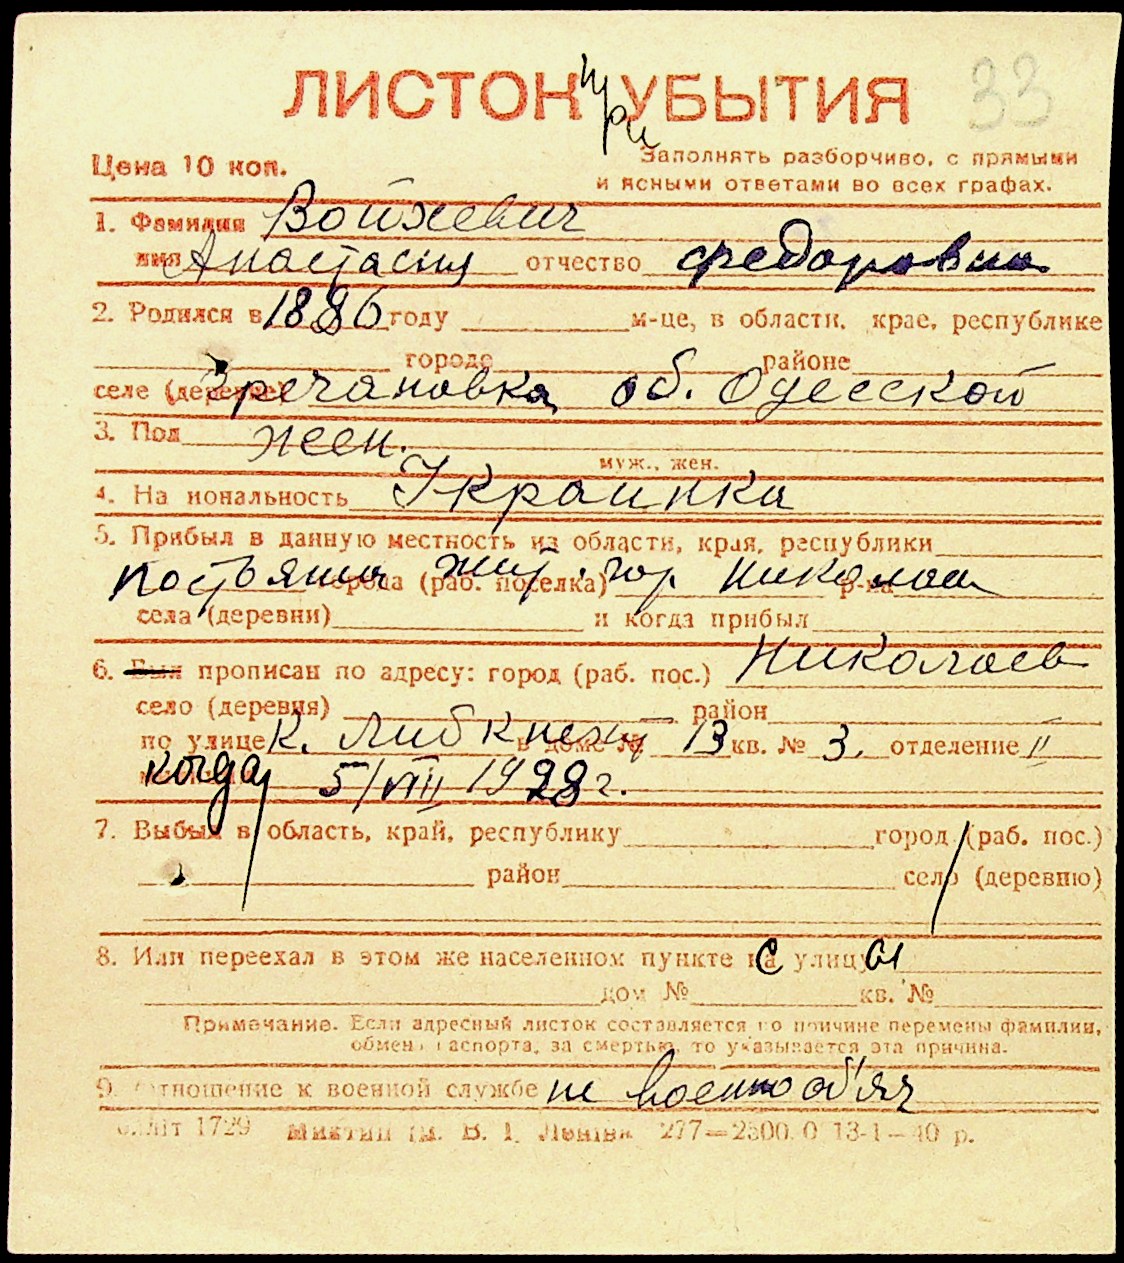 ЛИСТОК УБЫТИЯ
при
33
Цена 10 коп.
Заполнять разборчиво, с прямыми
и ясными ответами во всех графах.
1. Фамилия Войжевич
имя Анастасия отчество федоровна
2. Родился в 1886 году м-це, в области, крае, республике
городе районе
селе (деревне) Гречановка об. Одесской
3. Пол жен.
муж., жен.
4. На иональность Украинка
5. Прибыл в данную местность из области, края, республики
постоян жит. гор Николаев города (раб. поселка) р-на
села (деревни) и когда прибыл
6. Был прописан по адресу: город (раб. пос.) Николаев
село (деревня) район
по улице К. Либкнехт в доме № 13 кв. № 3. отделение II
когда 5/VIII 1928 г.
7. Выбыл в область, край, республику город (раб. пос.)
район село (деревню)
8. Или переехал в этом же населенном пункте на с улицу ы
дом № кв. №
Примечание. Если адресный листок составляется по причине перемены фамилии,
обмена паспорта, за смертью, то указывается эта причина.
9. Отношение к военной службе не военнооб'яз
1729 В. І. Леніна 277—2500.0 13-1—40 р.